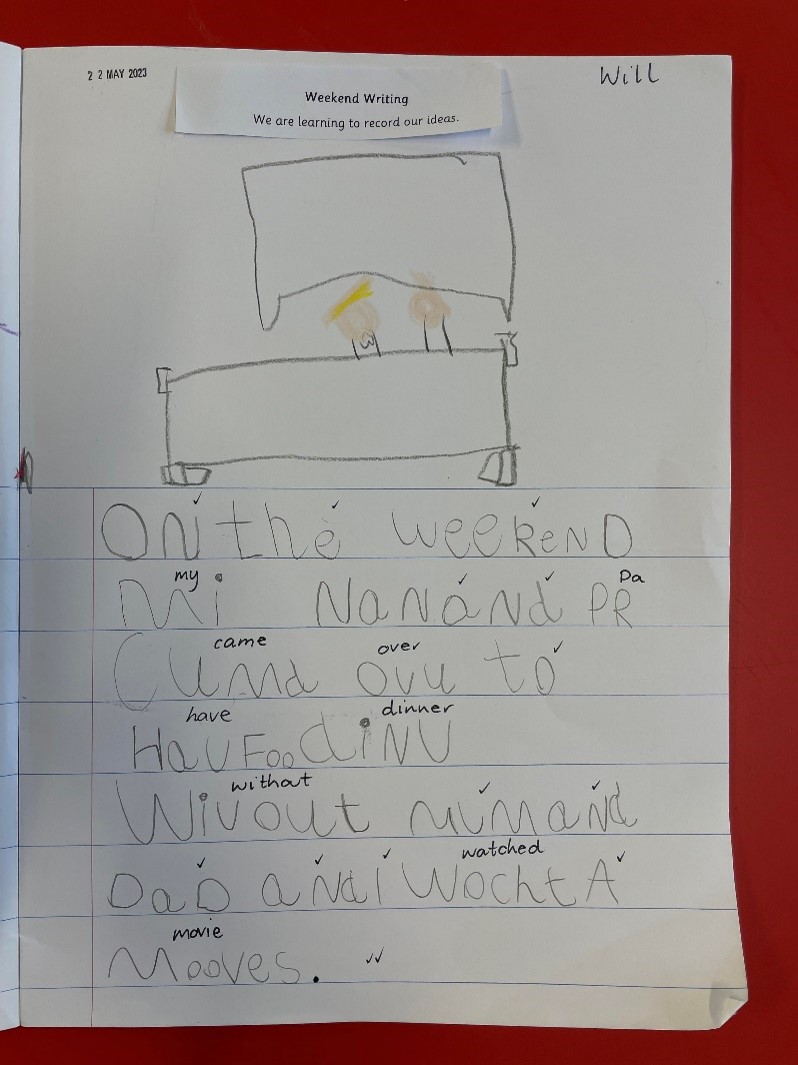 22 MAY 2023
Will
Weekend Writing
We are learning to record our ideas.
ON the weekeND
my Pa
Mi NaNaNd PR
came over
CUMd ovu to
have dinner
HaU Foo diNU
without
Wivout mumaNd
watched
DaD aNd i Wocht A
movie
Mooves.